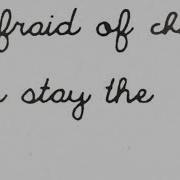 fraid of ch
stay the